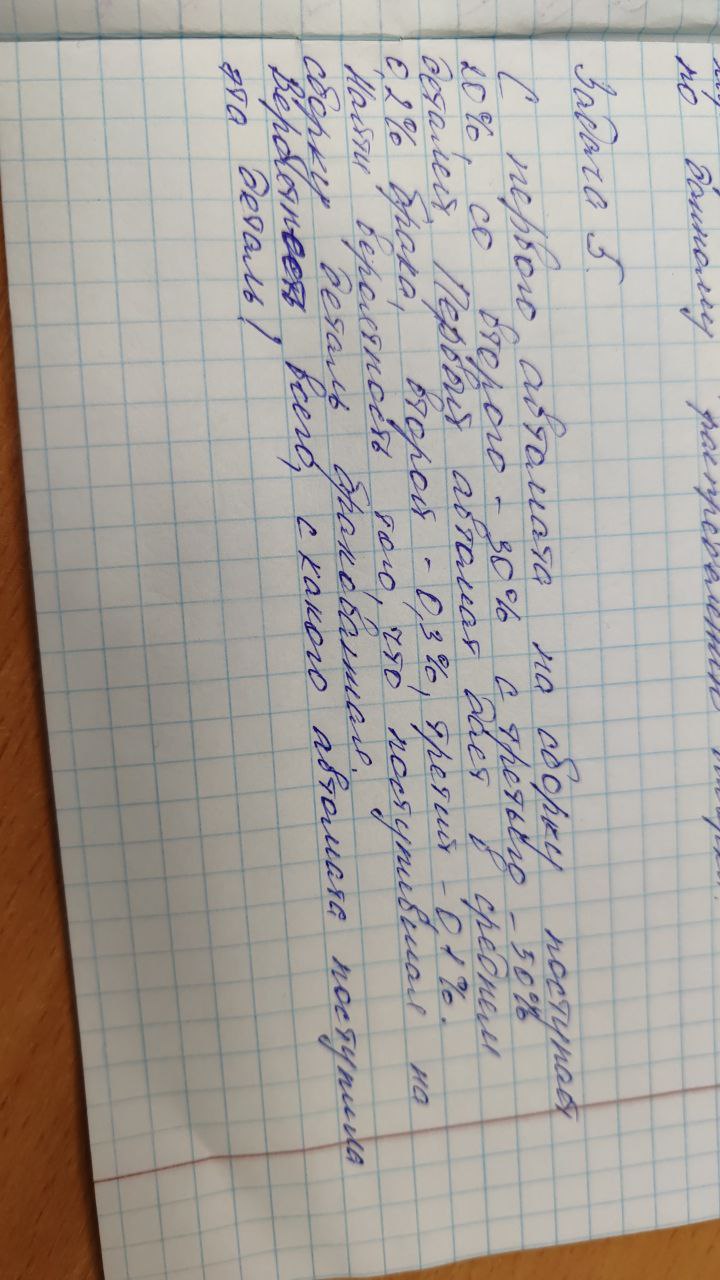 по данному распределению
Задача 5.
С первого автомата на сборку поступает
20%, со второго - 30% с третьего - 50%
деталей. Первый автомат дает в среднем
0,2% брака, второй - 0,3%, третий - 0,1%.
Найти вероятность того, что поступившая на
сборку деталь бракованная.
Вероятность всего, с какого автомата поступила
эта деталь?